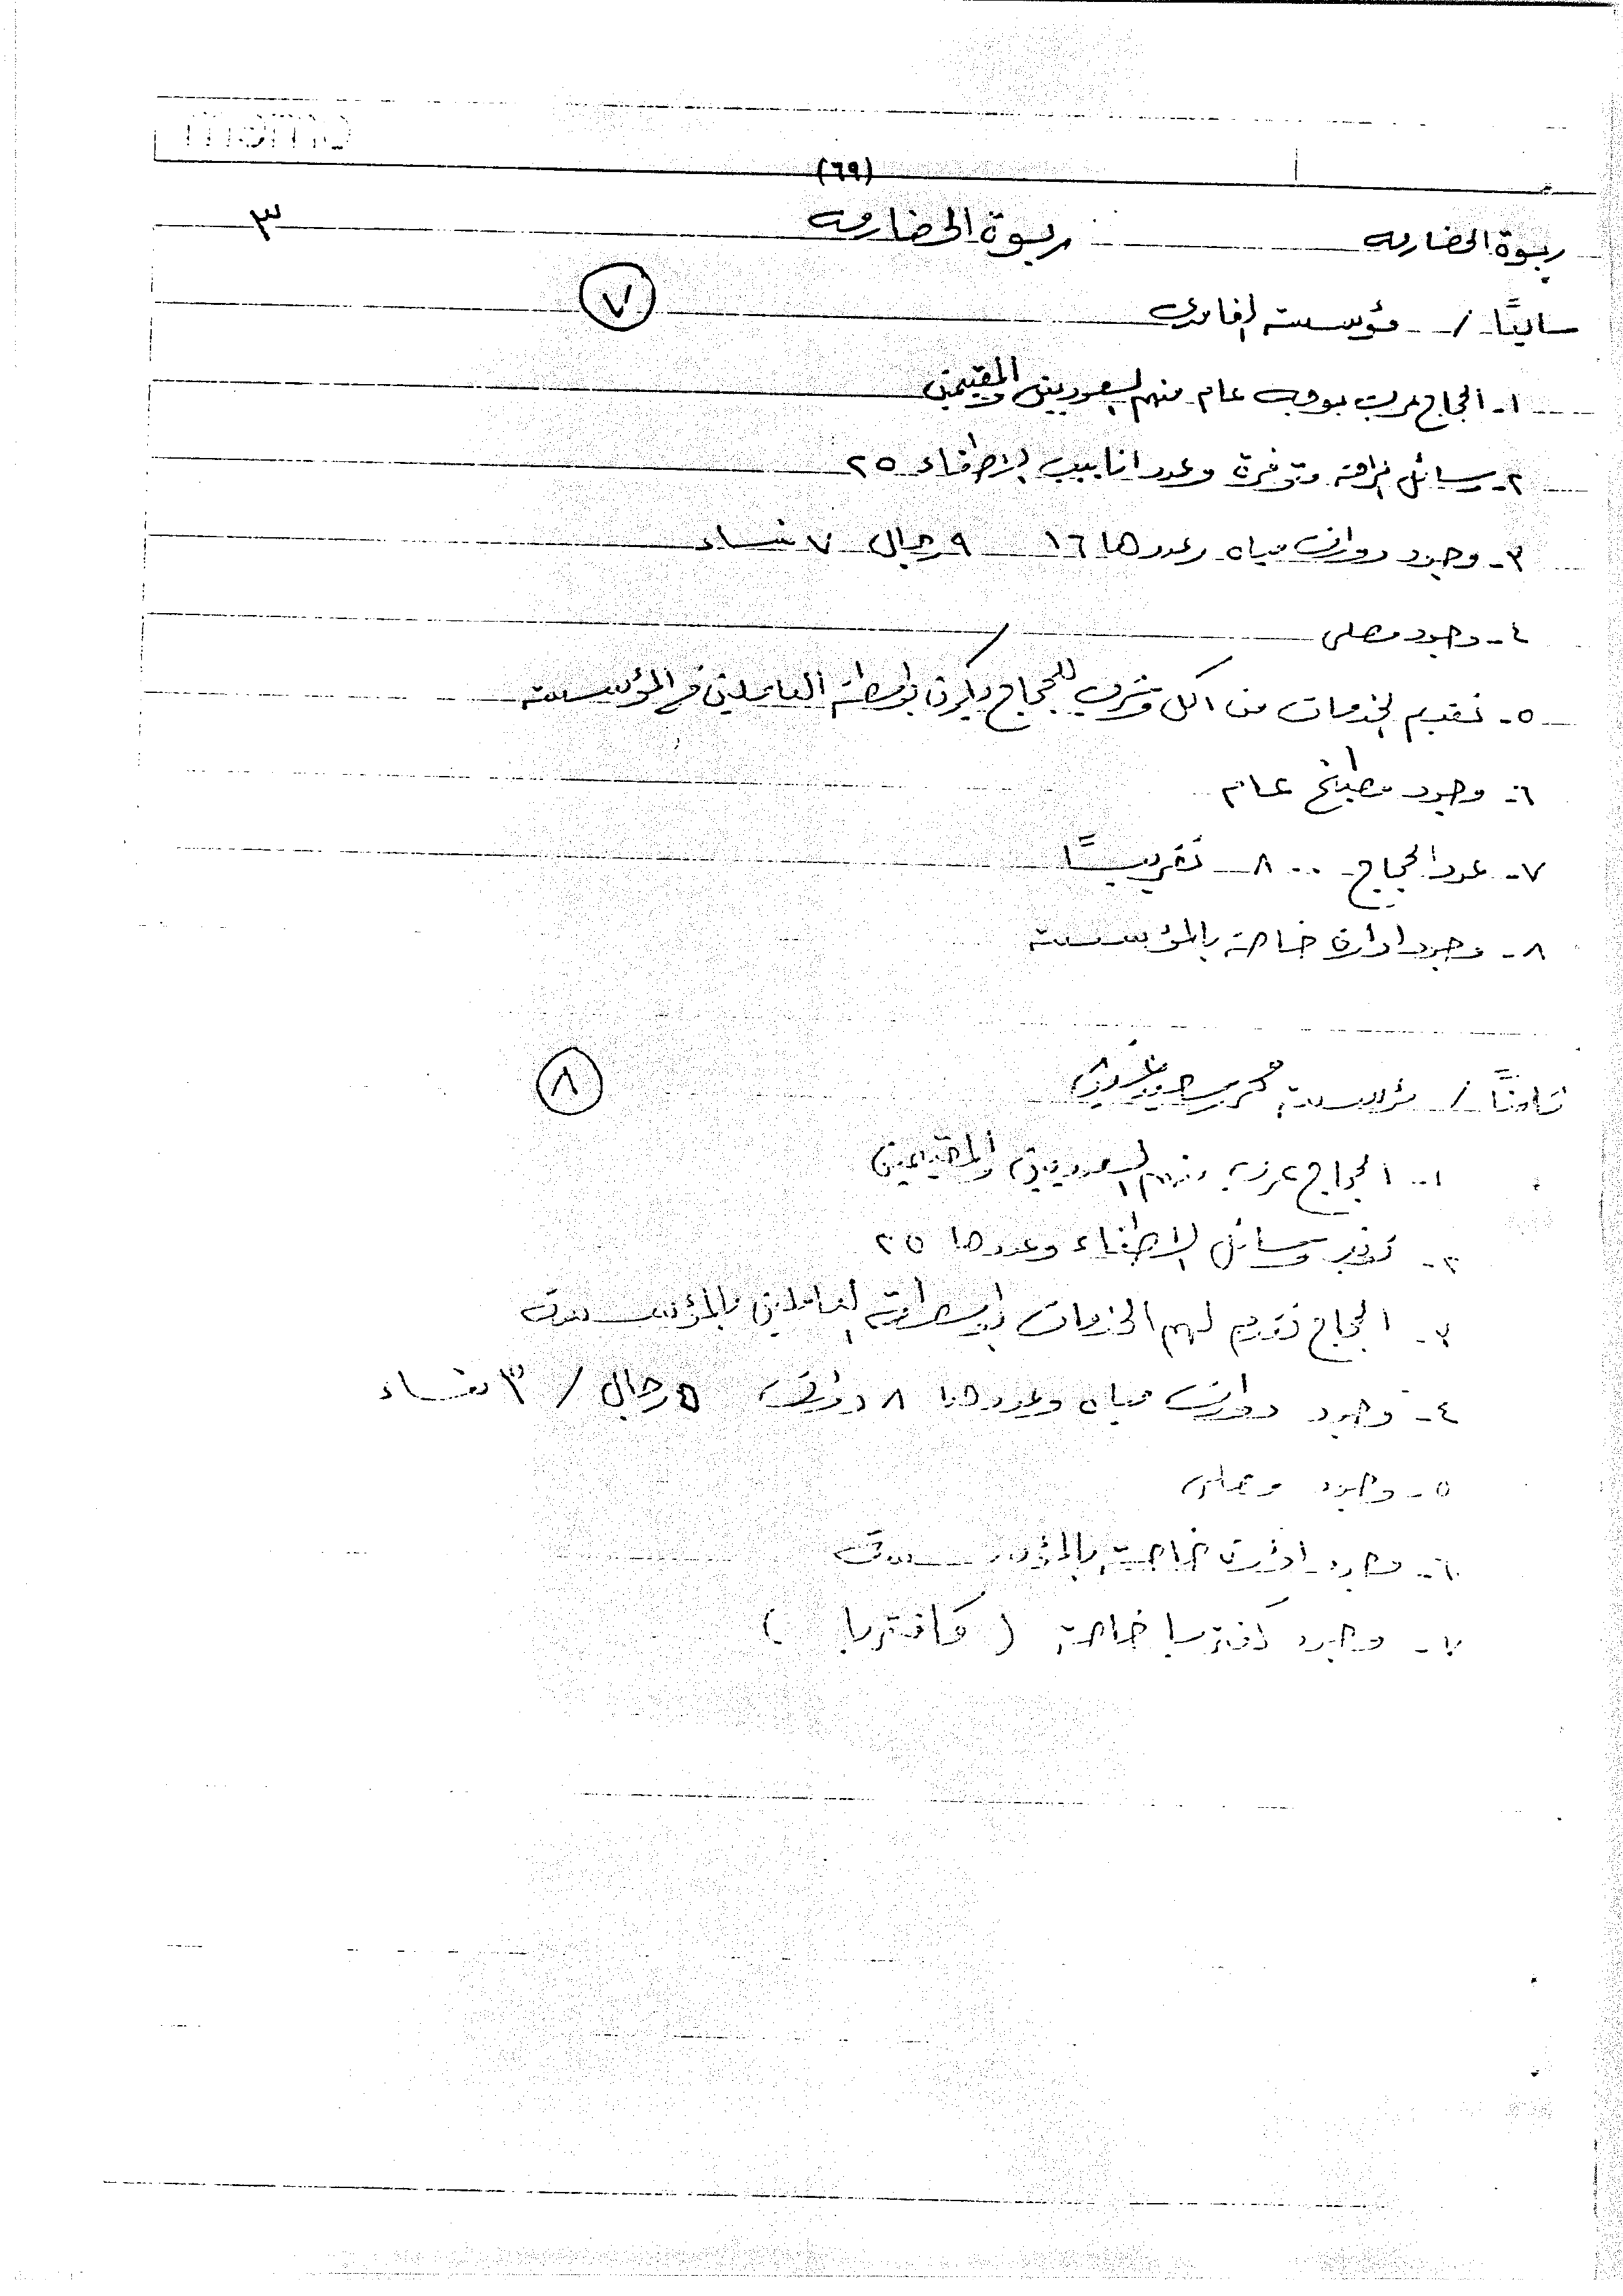 (٦٩)
ربوة الحضارمه ربوة الحضارمه ٣
سابعًا / مؤسسة الغامدي ٧
١- الحجاج عرب بوجه عام منهم السعوديين والمقيمين
٢- وسائل متوفرة وعدد انابيب الاطفاء ٢٥
٣- وجود دورات مياه وعددها ١٦ ٩ رجال ٧ نساء
٤- وجود مصلى
٥- تقديم الخدمات من اكل وشرب للحجاج ويكون بواسطة العاملين في المؤسسة
٦- وجود مطبخ عام
٧- عدد الحجاج ٨٠٠ تقريبًا
٨- وجود ادارة خاصة بالمؤسسة
ثامنًا / مؤسسة ٨
١- الحجاج عرب منهم السعوديين والمقيمين
٢- توفر وسائل الاطفاء وعددها ٢٥
٣- الحجاج تقدم لهم الخدمات بواسطة العاملين بالمؤسسة
٤- وجود دورات مياه وعددها ٨ دورات ٥ رجال / ٣ نساء
٥- وجود مصلى
٦- وجود ادارة خاصة بالمؤسسة
٧- وجود كفتريا خاصة ( كافتريا )